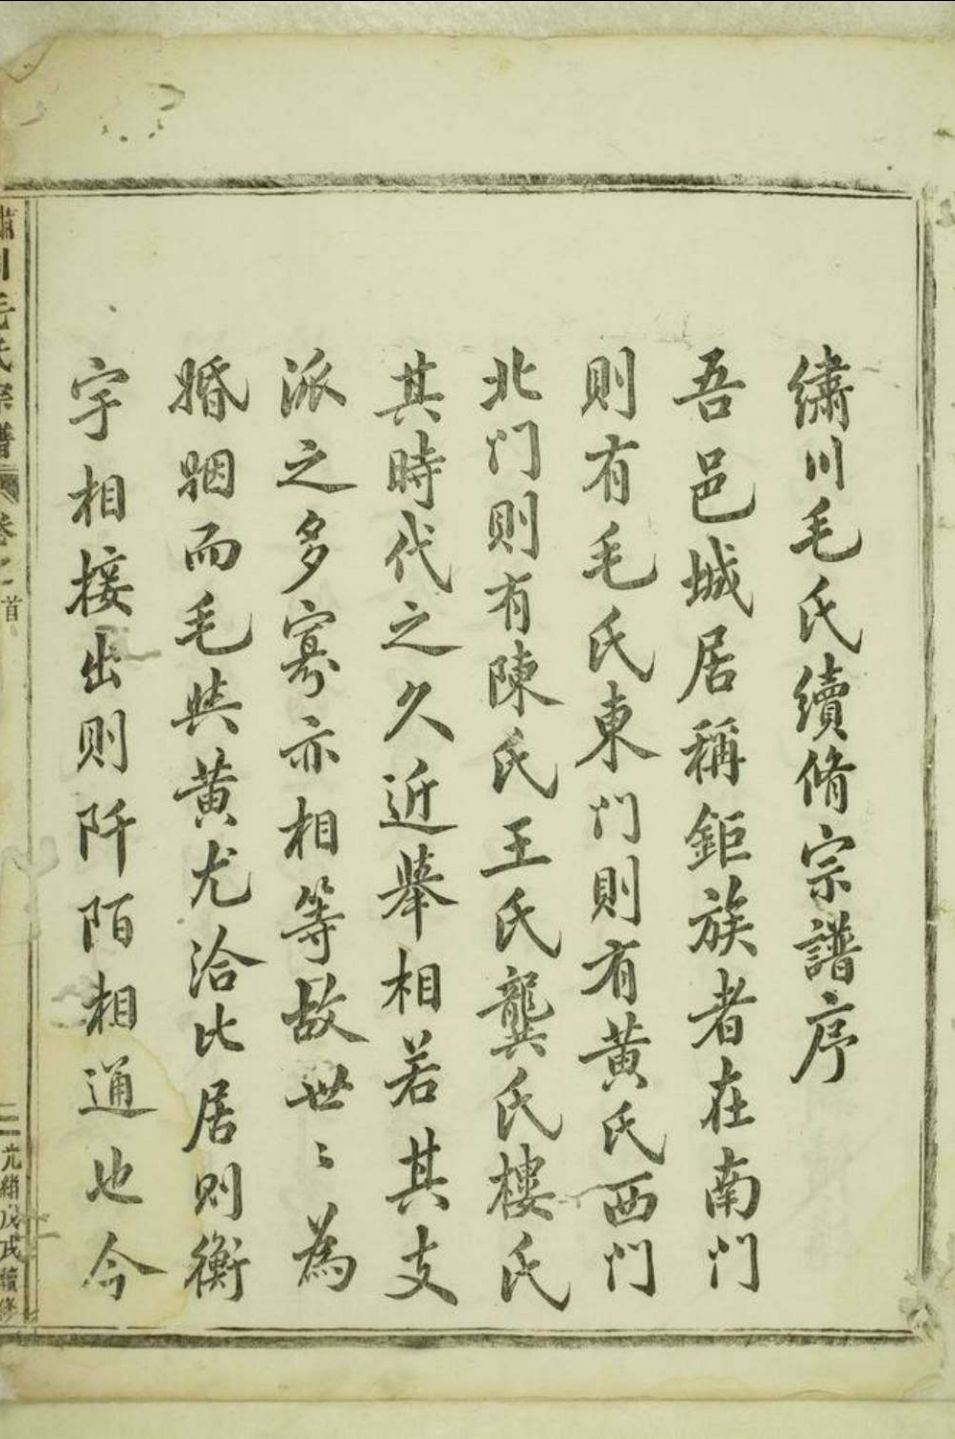 繡川毛氏續脩宗譜序
吾邑城居稱鉅族者在南门
则有毛氏東门則有黄氏西门
北门則有陳氏王氏龔氏樓氏
其時代之久近舉相若其支
派之多寡亦相等故世〻為
婚姻而毛與黄尤洽比居则衡
宇相接出则阡陌相通也今
川毛氏宗譜
卷之首
光緒戊戌續修